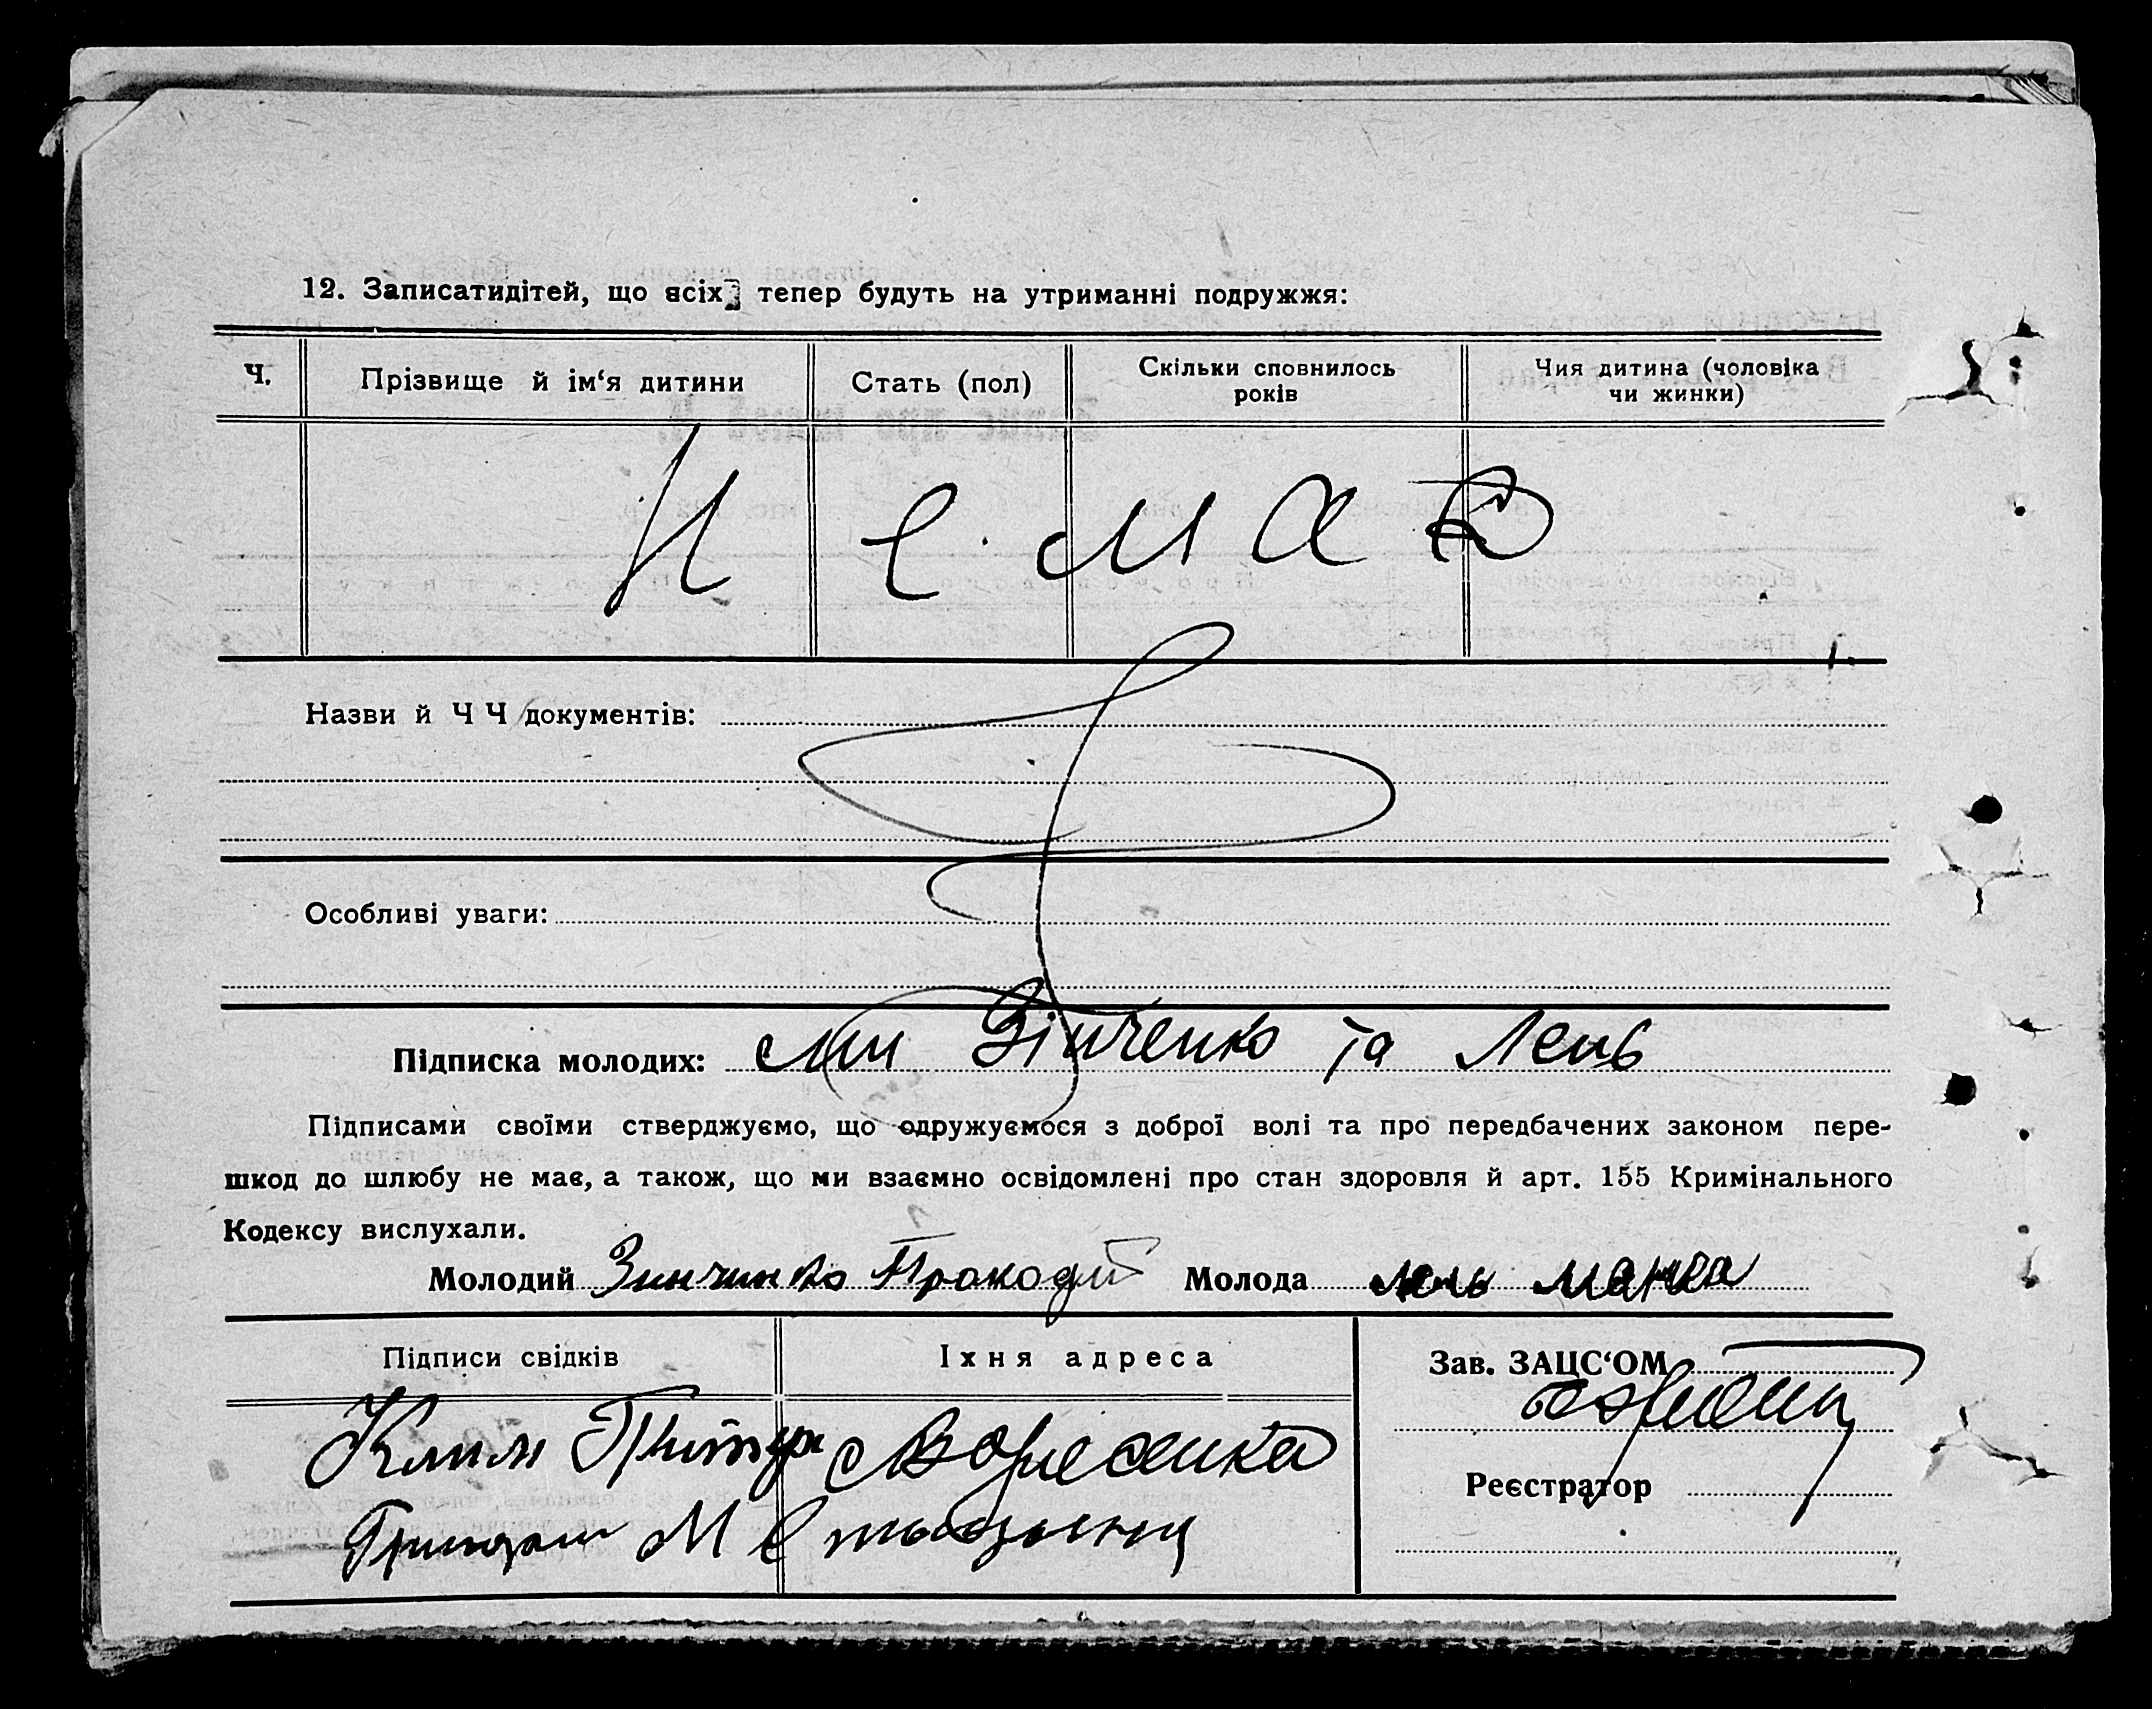 12. Записатидітей, що всіх тепер будуть на утриманні подружжя:
Ч.
Прізвище й ім‘я дитини
Стать (пол)
Скільки сповнилось
років
Чия дитина (чоловіка
чи жинки)
Немає
Назви й ЧЧ документів:
Особливі уваги:
Підписка молодих: Ми Зінченко та Лень
Підписами своїми стверджуємо, що одружуємося з доброї волі та про передбачених законом пере-
шкод до шлюбу не має, а також, що ми взаємно освідомлені про стан здоровля й арт. 155 Кримінального
Кодексу вислухали.
Молодий Зинчинко Молода лень
Підписи свідків
Їхня адреса
Зав. ЗАЦС‘ОМ
Клим
Реєстратор